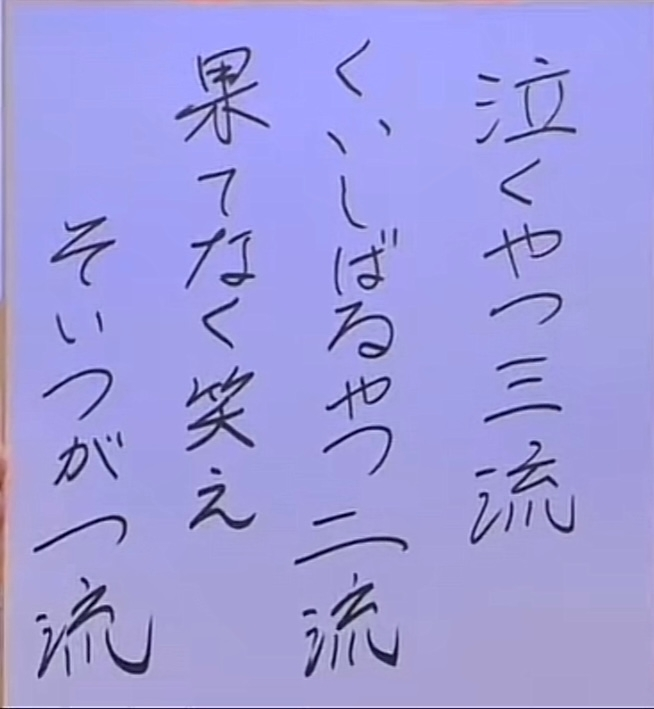 泣くやつ三流
くいしばるやつ二流
果てなく笑え
そいつが一流